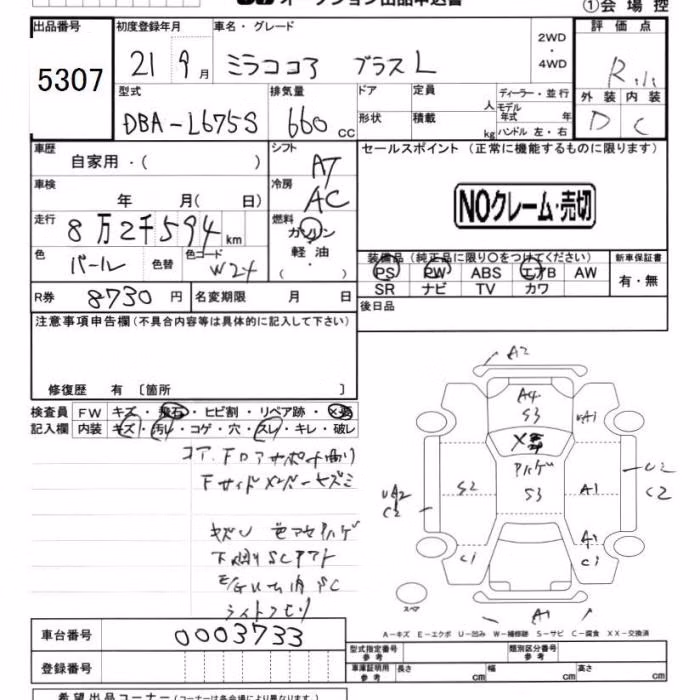 オークション出品申込書 ①会場控
出品番号 初度登録年月 車名・グレード 評価点
5307 21 9月 ミラココア プラス L 2WD・4WD R
型式 排気量 ドア 定員 人 ディーラー・並行 外装 内装
DBA-L675S 660 cc 形状 積載 kg モデル年式 年 ハンドル 左・右 D C
車歴 シフト セールスポイント（正常に機能するものに限ります）
自家用・( ) AT
車検 冷房 NOクレーム・売切
年 月( 日) AC
走行 燃料
8万2千594km ガソリン
色 色替 色コード 軽油 装備品（純正品に限り○をつけてください） 新車保証書
パール W24 ( ) PS PW ABS エアB AW 有・無
R券 8730円 名変期限 月 日 SR ナビ TV カワ
注意事項申告欄（不具合内容等は具体的に記入して下さい） 後日品
修復歴 有 〔箇所 〕
検査員 FW キズ・飛石・ヒビ割・リペア跡・
記入欄 内装 キズ・汚れ・コゲ・穴・スレ・キレ・破レ
コア.Fロアサポート曲り
Fサイドメンバーキズミ
キズU 色アセ ハゲ
下廻りSCアリ
E/Gルーム内SC
ライトクモリ
A2
A4
S3 UA1
X
ハゲ
S3
U2
C2
UA2
C2
S2 A1
A1
C1 C1
スペア A1
A－キズ E－エクボ U－凹み W－補修跡 S－サビ C－腐食 XX－交換済
車台番号 0003733
型式指定番号 参考 類別区分番号 参考
登録番号 車庫証明用 参考 長さ cm 幅 cm 高さ cm
希望出品コーナー（コーナーは各会場により異なります）